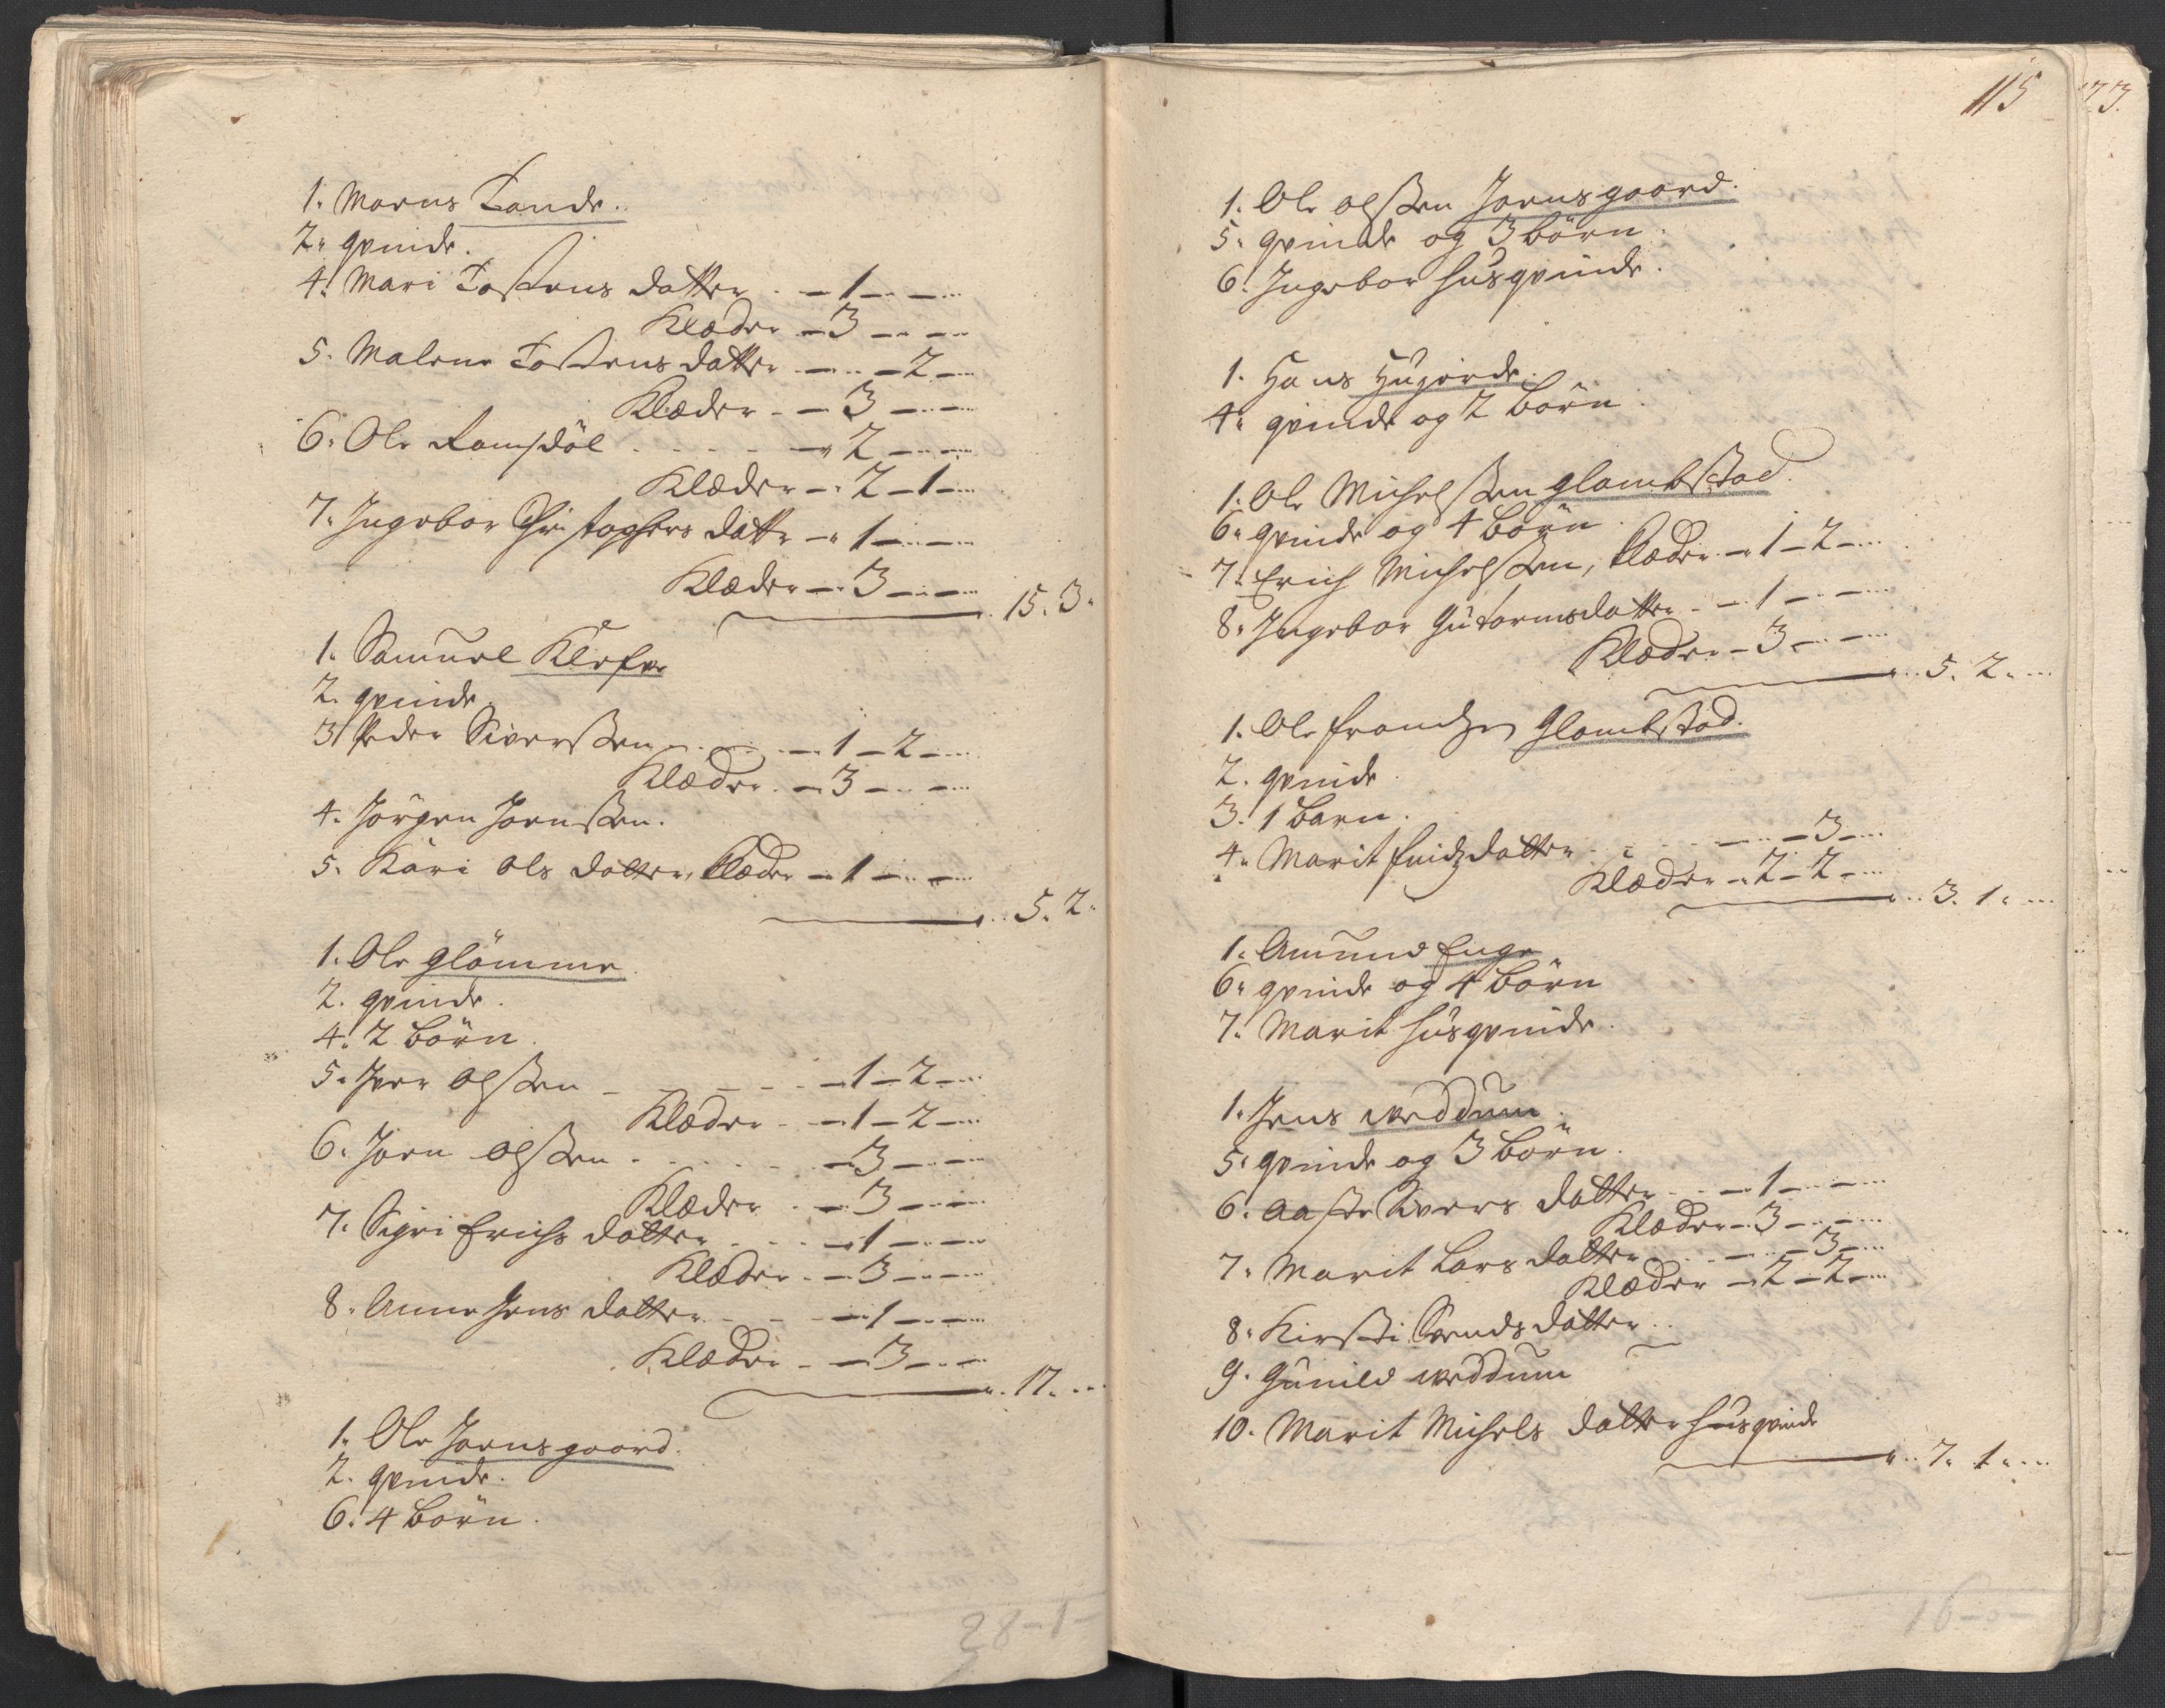 1. Marns Tande.
2. qvinde.
4. Mari Tostens datter - 1 - -
Klæder - 3 - -
5. Malene Tostens datter - - 2 -
Klæder - 3 - -
6. Ole Ramsdöl - 2 - -
Klæder - 2 - 1 -
7. Ingebor Christophers datt. - 1 - -
Klæder - 3 - -
15. 3.
1. Samuel Klefve
2. qvinde
3. Peder Sivers̄sen - 1 - 2 -
Klæder - 3 - -
4. Jörgen Joenssen.
5. Kari Ols datter, Klæder - 1 - -
5. 2.
1. Ole Glömme.
2. qvinde.
4. 2 börn.
5. Iver Olssen - 1 - 2 -
Klæder - 1 - 2 -
6. Joen Olssen - 3 - -
Klæder - 3 - -
7. Sigri Erichs datter - 1 - -
Klæder - 3 - -
8. Anne Jens datter - 1 - -
Klæder - 3 - -
17.
1. Ole Joensgaard.
2. qvinde.
6. 4 börn.
28-1-
115
73.
1. Ole Olssen Joensgaard.
5. qvinde og 3 börn.
6. Ingebor husqvinde.
1. Hans
4. qvinde og 2 börn.
1. Ole Michelssen Glambstad.
6. qvinde og 4 börn.
7. Erich Michelssen, Klæder - 1 - 2 -
8. Ingebor Gutormsdatter - 1 - -
Klæder - 3 - -
5. 2.
1. Ole Frandzen Glambstad.
2. qvinde.
3. 1 barn.
4. Marit datter - - 3 -
Klæder - 2 - 2 -
3. 1.
1. Amund Enge
6. qvinde og 4 börn
7. Marit husqvinde.
1. Jens Weddum.
5. qvinde og 3 börn.
6. Aaste Sivers datter - 1 - -
Klæder - 3 - -
7. Marit Lars datter - - 3 -
Klæder - 2 - 2 -
8. Kirsti Svends datter.
9. Gunild Weddum
10. Marit Michels datter husqvinde
7. 1.
16-0-